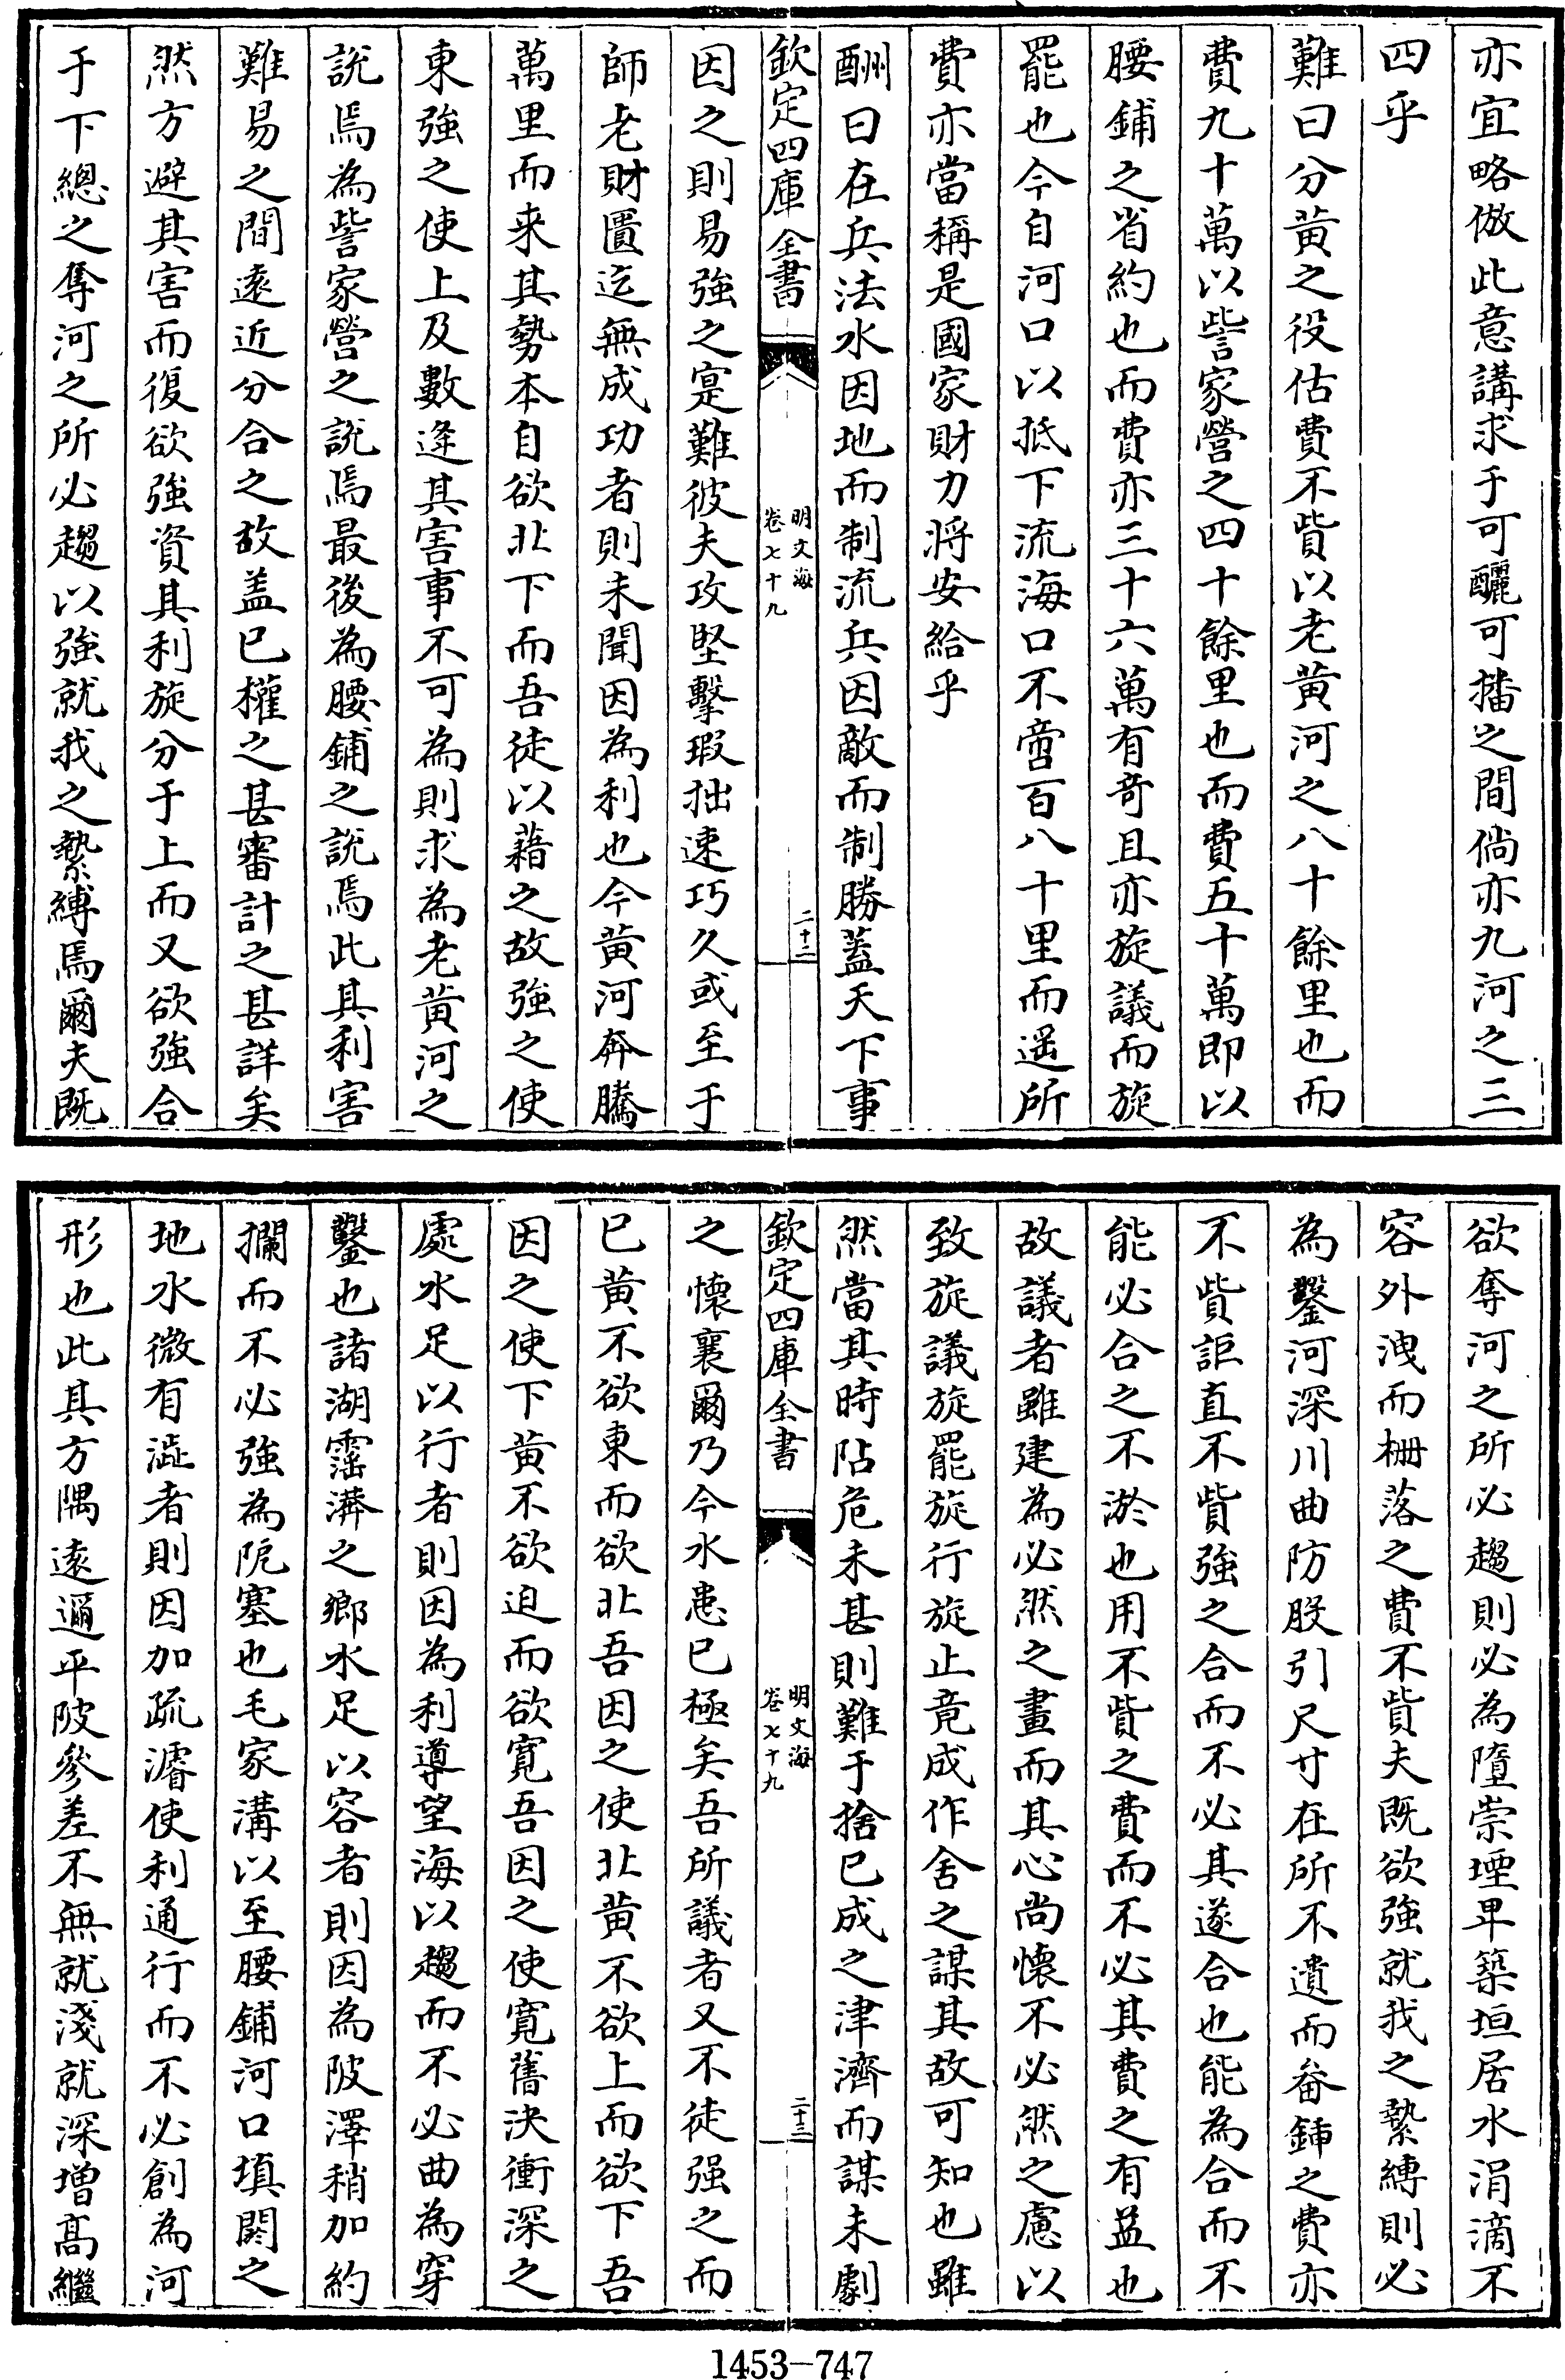 亦宜略倣此意講求于可釃可播之間倘亦九河之三
四乎
難曰分黄之役估費不貲以老黄河之八十餘里也而
費九十萬以訾家營之四十餘里也而費五十萬即以
腰鋪之省約也而費亦三十六萬有竒且亦旋議而旋
罷也今自河口以抵下流海口不啻百八十里而遥所
費亦當稱是國家財力将安給乎
酬曰在兵法水因地而制流兵因敵而制勝蓋天下事
欽定四庫全書
明文海
卷七十九
二十二
因之則易強之寔難彼夫攻堅擊瑕拙速巧久或至于
師老財匱迄無成功者則未聞因為利也今黄河奔騰
萬里而来其勢本自欲北下而吾徒以藉之故強之使
東強之使上及數逢其害事不可為則求為老黄河之
說焉為訾家營之說焉最後為腰鋪之說焉此其利害
難易之間遠近分合之故盖已權之甚審計之甚詳矣
然方避其害而復欲強資其利旋分于上而又欲強合
于下總之奪河之所必趨以強就我之縶縛焉爾夫既
欲奪河之所必趨則必為墮崇堙卑築垣居水涓滴不
容外洩而柵落之費不貲夫既欲強就我之縶縛則必
為鑿河深川曲防股引尺寸在所不遺而畚鍤之費亦
不貲詎直不貲強之合而不必其遂合也能為合而不
能必合之不淤也用不貲之費而不必其費之有益也
故議者雖建為必然之畫而其心尚懷不必然之慮以
致旋議旋罷旋行旋止竟成作舍之謀其故可知也雖
然當其時阽危未甚則難于捨已成之津濟而謀未劇
欽定四庫全書
明文海
卷七十九
二十三
之懷襄爾乃今水患已極矣吾所議者又不徒强之而
已黄不欲東而欲北吾因之使北黄不欲上而欲下吾
因之使下黄不欲迫而欲寛吾因之使寛舊決衝深之
處水足以行者則因為利導望海以趨而不必曲為穿
鑿也諸湖霑漭之鄉水足以容者則因為陂澤稍加約
攔而不必強為阸塞也毛家溝以至腰鋪河口填閼之
地水微有澁者則因加疏濬使利通行而不必創為河
形也此其方隅遠邇平陂參差不無就淺就深增髙繼
1453—747